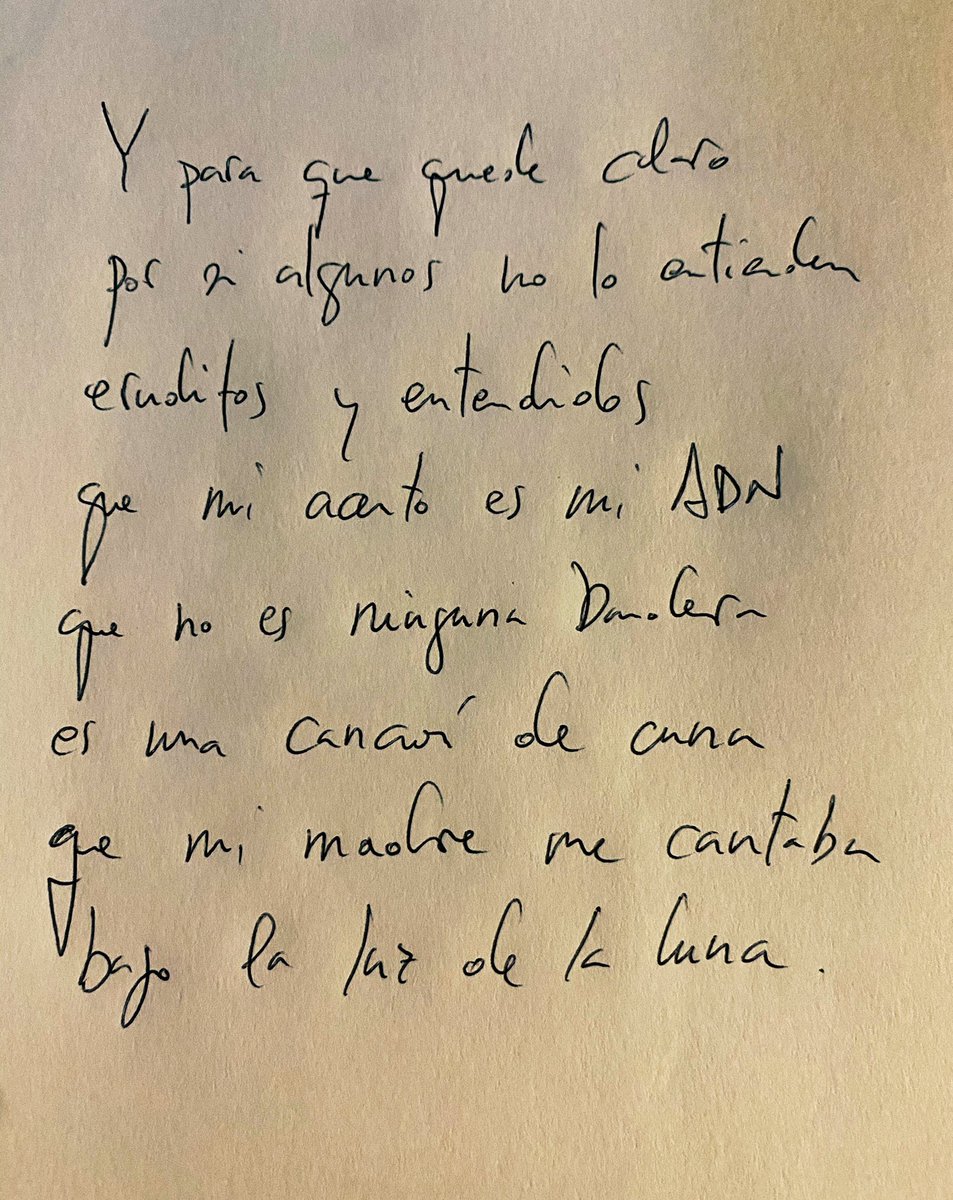 Y para que quede claro
por si algunos no lo entienden
eruditos y entendidos
que mi acento es mi ADN
que no es ninguna Bandera
es una canción de cuna
que mi madre me cantaba
bajo la luz de la luna.